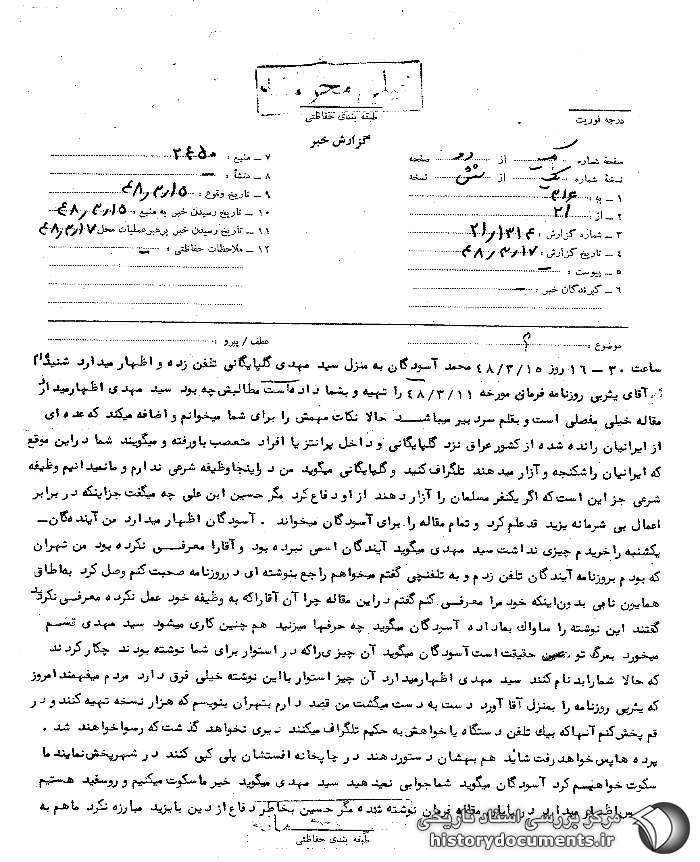 خیلی محرمانه
طبقه بندی حفاظتی
گزارش خبر
درجه فوریت
صفحه شماره یک از دو صفحه
نسخه شماره یک از شش نسخه
۱ ـ به : ۳۱۶
۲ ـ از : ۲۱
۳ ـ شماره گزارش : ۲۱/۱۳۱۴
۴ ـ تاریخ گزارش : ۴۸/۳/۱۷
۵ ـ پیوست : ـ
۶ ـ گیرندگان خبر : ـ
۷ ـ منبع : ۲۶۵۰
۸ ـ منشأ : ـ
۹ ـ تاریخ وقوع : ۴۸/۳/۱۵
۱۰ ـ تاریخ رسیدن خبر به منبع : ۴۸/۳/۱۵
۱۱ ـ تاریخ رسیدن خبر برهبر عملیات محل : ۴۸/۳/۱۷
۱۲ ـ ملاحظات حفاظتی : ـ
موضوع :
عطف / پیرو :
ساعت ۳۰ – ۱۶ روز ۴۸/۳/۱۵ محمد آسودگان به منزل سید مهدی گلپایگانی تلفن زده و اظهار میدارد شنیده‌ام
آقای یثربی روزنامه فرمان مورخه ۴۸/۳/۱۱ را تهیه و بشما داده‌است مطالبش چه بود سید مهدی اظهار میدارد
مقاله خیلی مفصلی است و بقلم سردبیر میباشد حالا نکات مهمش را برای شما میخوانم و اضافه میکند که عده‌ای
از ایرانیان رانده شده از کشور عراق نزد گلپایگانی و داخل پرانتز یا افراد متعصب یاورفته و میگویند شما در این موقع
که ایرانیان را شکنجه و آزار میدهند تلگراف کنید و گلپایگانی میگوید من در اینجا وظیفه شرعی ندارم و مانمیدانیم وظیفه
شرعی جز این است که اگر یکنفر مسلمان را آزار دهند از او دفاع کرد مگر حسین ابن علی چه میگفت جز اینکه در برابر
اعمال بی شرمانه یزید قد علم کرد و تمام مقاله را برای آسودگان میخواند . آسودگان اظهار میدارد من آیندگان ـ
یکشنبه را خریدم چیزی نداشت سید مهدی میگوید آیندگان اسمی نبرده بود و آقا را معرفی نکرده بود من تهران
که بودم بروزنامه آیندگان تلفن زدم و به تلفنچی گفتم میخواهم راجع بنوشته‌ای در روزنامه صحبت کنم وصل کرد به اطاق
همایون نامی بدون اینکه خودم را معرفی کنم گفتم در این مقاله چرا آن آقا را که به وظیفه خود عمل نکرده معرفی نکرده‌اید
گفتند این نوشته را ساواک بماداده آسودگان میگوید چه حرفها میزنید هم چنین کاری میشود سید مهدی قسم
میخورد بمرگ تو حقیقت است آسودگان میگوید آن چیزی را که در استوار برای شما نوشته بودند چکار کردند
که حالا شما را بدنام کنند سید مهدی اظهار میدارد آن چیز استوار با این نوشته خیلی فرق دارد مردم میفهمند امروز
که یثربی روزنامه را بمنزل آقا آورد دست به دست میگشت من قصد دارم بتهران بنویسم که هزار نسخه تهیه کنند و در
قم پخش کنم آنها که بیک تلفن دستگاه یا خواهش به حکیم تلگراف میکنند دیری نخواهد گذشت که رسوا خواهند شد .
پرده‌ها پس خواهد رفت شاید هم بهشان دستور دهند در چاپخانه افستشان پلی کپی کنند در شهر پخش نمایند ما
سکوت خواهیم کرد آسودگان میگوید شما جوابی نمیدهید سید مهدی میگوید خیر ما سکوت میکنیم و روسفید هستیم
اظهار میدارد در پایان مقاله فرمان نوشته شده مگر حسین بخاطر دفاع از دین با یزید مبارزه نکرد ما هم به
طبقه بندی حفاظتی
مرکز بررسی اسناد تاریخی
historydocuments.ir